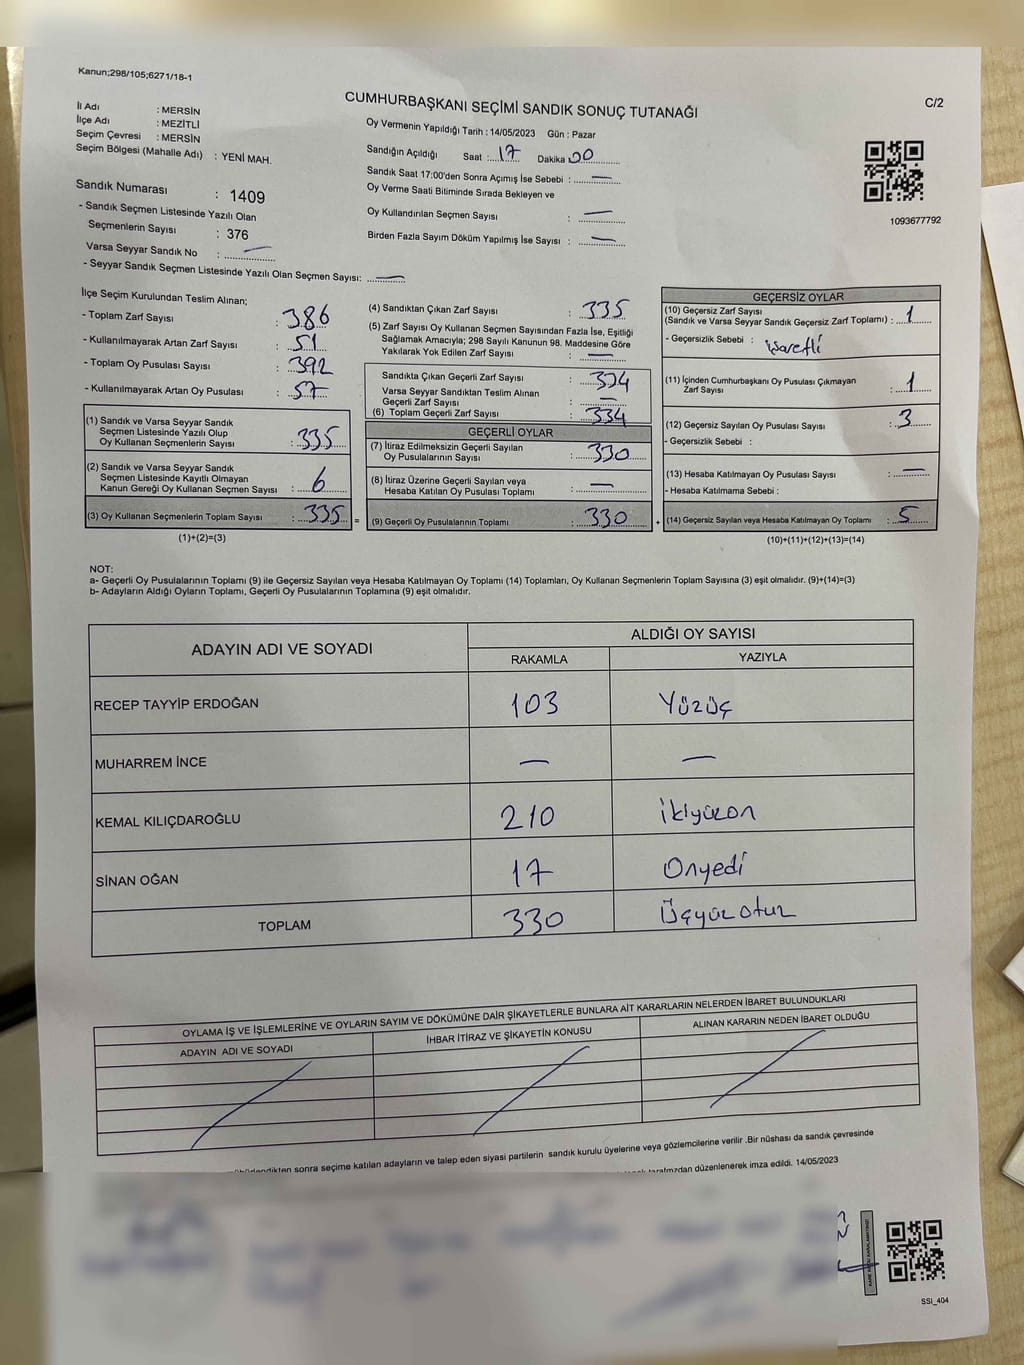 Kanun;298/105;6271/18-1
C/2
CUMHURBAŞKANI SEÇİMİ SANDIK SONUÇ TUTANAĞI
İl Adı : MERSİN
İlçe Adı : MEZİTLİ
Seçim Çevresi : MERSİN
Seçim Bölgesi (Mahalle Adı) : YENİ MAH.
Sandık Numarası : 1409
- Sandık Seçmen Listesinde Yazılı Olan
Seçmenlerin Sayısı : 376
Varsa Seyyar Sandık No : —
- Seyyar Sandık Seçmen Listesinde Yazılı Olan Seçmen Sayısı: —
Oy Vermenin Yapıldığı Tarih : 14/05/2023 Gün : Pazar
Sandığın Açıldığı Saat : 17 Dakika 00
Sandık Saat 17:00'den Sonra Açımış İse Sebebi : —
Oy Verme Saati Bitiminde Sırada Bekleyen ve
Oy Kullandırılan Seçmen Sayısı : —
Birden Fazla Sayım Döküm Yapılmış İse Sayısı : —
1093677792
İlçe Seçim Kurulundan Teslim Alınan;
- Toplam Zarf Sayısı : 386
- Kullanılmayarak Artan Zarf Sayısı : 51
- Toplam Oy Pusulası Sayısı : 392
- Kullanılmayarak Artan Oy Pusulası : 57
(1) Sandık ve Varsa Seyyar Sandık
Seçmen Listesinde Yazılı Olup
Oy Kullanan Seçmenlerin Sayısı : 335
(2) Sandık ve Varsa Seyyar Sandık
Seçmen Listesinde Kayıtlı Olmayan
Kanun Gereği Oy Kullanan Seçmen Sayısı : 6
(3) Oy Kullanan Seçmenlerin Toplam Sayısı : 335 =
(1)+(2)=(3)
(4) Sandıktan Çıkan Zarf Sayısı : 335
(5) Zarf Sayısı Oy Kullanan Seçmen Sayısından Fazla İse, Eşitliği
Sağlamak Amacıyla; 298 Sayılı Kanunun 98. Maddesine Göre
Yakılarak Yok Edilen Zarf Sayısı : —
Sandıkta Çıkan Geçerli Zarf Sayısı : 334
Varsa Seyyar Sandıktan Teslim Alınan
Geçerli Zarf Sayısı : —
(6) Toplam Geçerli Zarf Sayısı : 334
GEÇERLİ OYLAR
(7) İtiraz Edilmeksizin Geçerli Sayılan
Oy Pusulalarının Sayısı : 330
(8) İtiraz Üzerine Geçerli Sayılan veya
Hesaba Katılan Oy Pusulası Toplamı : —
(9) Geçerli Oy Pusulalarının Toplamı : 330 +
GEÇERSİZ OYLAR
(10) Geçersiz Zarf Sayısı
(Sandık ve Varsa Seyyar Sandık Geçersiz Zarf Toplamı) : 1
- Geçersizlik Sebebi : işaretli
(11) İçinden Cumhurbaşkanı Oy Pusulası Çıkmayan
Zarf Sayısı : 1
(12) Geçersiz Sayılan Oy Pusulası Sayısı : 3
- Geçersizlik Sebebi :
(13) Hesaba Katılmayan Oy Pusulası Sayısı : —
- Hesaba Katılmama Sebebi :
(14) Geçersiz Sayılan veya Hesaba Katılmayan Oy Toplamı : 5
(10)+(11)+(12)+(13)=(14)
NOT:
a- Geçerli Oy Pusulalarının Toplamı (9) ile Geçersiz Sayılan veya Hesaba Katılmayan Oy Toplamı (14) Toplamları, Oy Kullanan Seçmenlerin Toplam Sayısına (3) eşit olmalıdır. (9)+(14)=(3)
b- Adayların Aldığı Oyların Toplamı, Geçerli Oy Pusulalarının Toplamına (9) eşit olmalıdır.
ADAYIN ADI VE SOYADI
ALDIĞI OY SAYISI
RAKAMLA YAZIYLA
RECEP TAYYİP ERDOĞAN 103 Yüzüç
MUHARREM İNCE — —
KEMAL KILIÇDAROĞLU 210 ikiyüzon
SİNAN OĞAN 17 Onyedi
TOPLAM 330 Üçyüzotuz
OYLAMA İŞ VE İŞLEMLERİNE VE OYLARIN SAYIM VE DÖKÜMÜNE DAİR ŞİKAYETLERLE BUNLARA AİT KARARLARIN NELERDEN İBARET BULUNDUKLARI
ADAYIN ADI VE SOYADI İHBAR İTİRAZ VE ŞİKAYETİN KONUSU ALINAN KARARIN NEDEN İBARET OLDUĞU
sonra seçime katılan adayların ve talep eden siyasi partilerin sandık kurulu üyelerine veya gözlemcilerine verilir .Bir nüshası da sandık çevresinde
düzenlenerek imza edildi. 14/05/2023
SSI_404